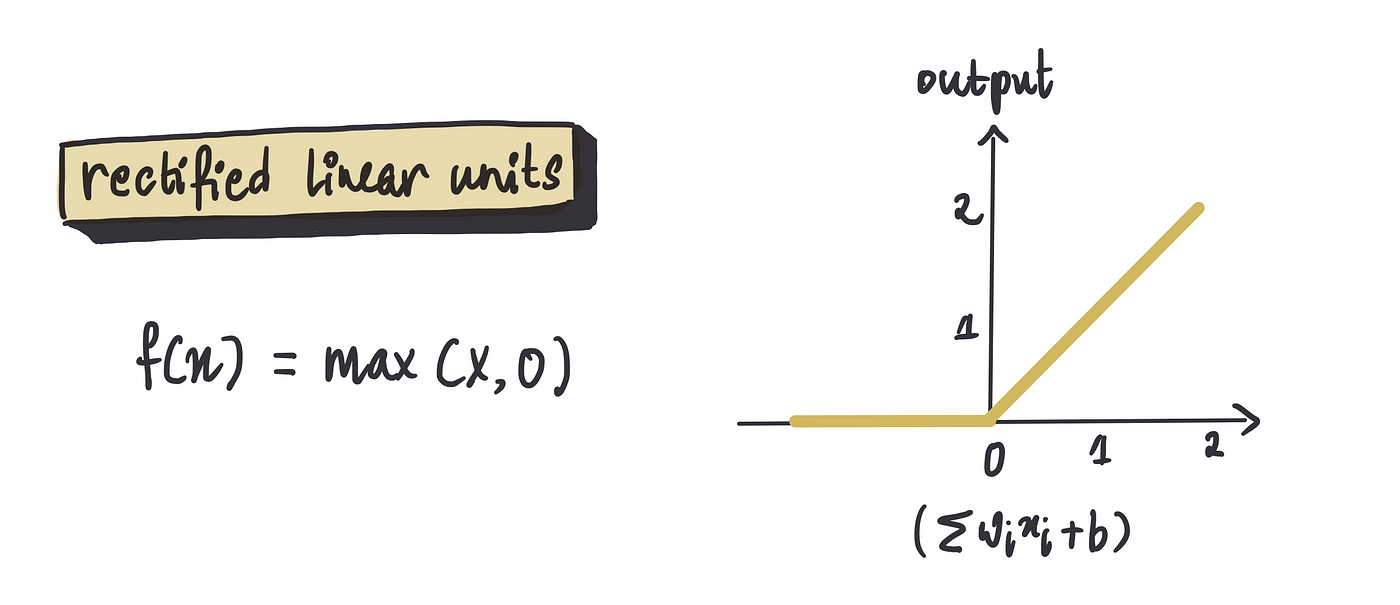 rectified linear units
f(x) = max (x, 0)
output
2
1
0 1 2
(Σ wᵢxᵢ + b)